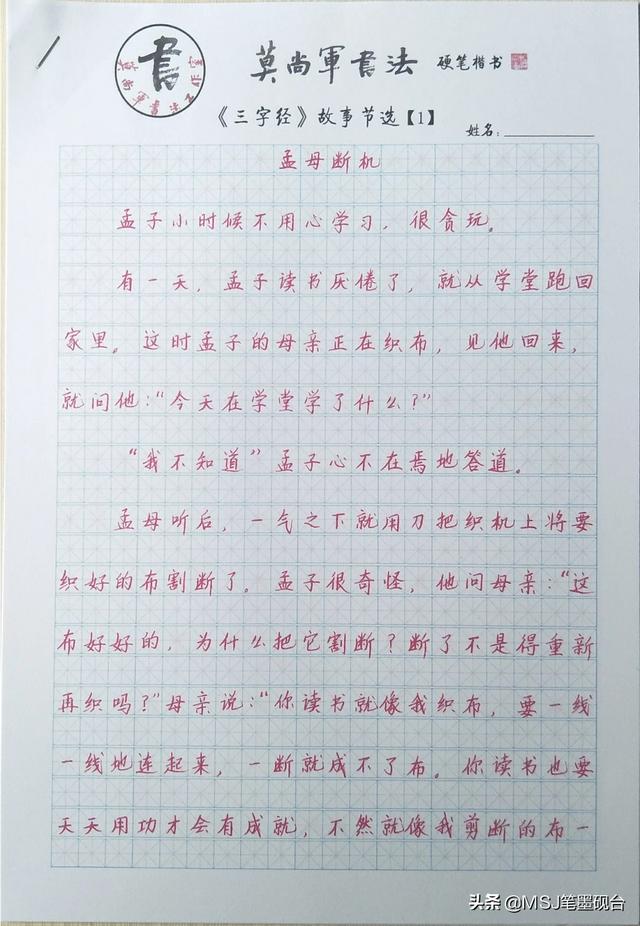 書
莫尚軍書法 硬笔楷书
《三字经》故事节选【1】
姓名：
孟母断机
孟子小时候不用心学习，很贪玩。
有一天，孟子读书厌倦了，就从学堂跑回
家里。这时孟子的母亲正在织布，见他回来，
就问他：“今天在学堂学了什么？”
“我不知道”孟子心不在焉地答道。
孟母听后，一气之下就用刀把织机上将要
织好的布割断了。孟子很奇怪，他问母亲：“这
布好好的，为什么把它割断？断了不是得重新
再织吗？”母亲说：“你读书就像我织布，要一线
一线地连起来，一断就成不了布。你读书也要
天天用功才会有成就，不然就像我剪断的布一
头条@MSJ笔墨砚台